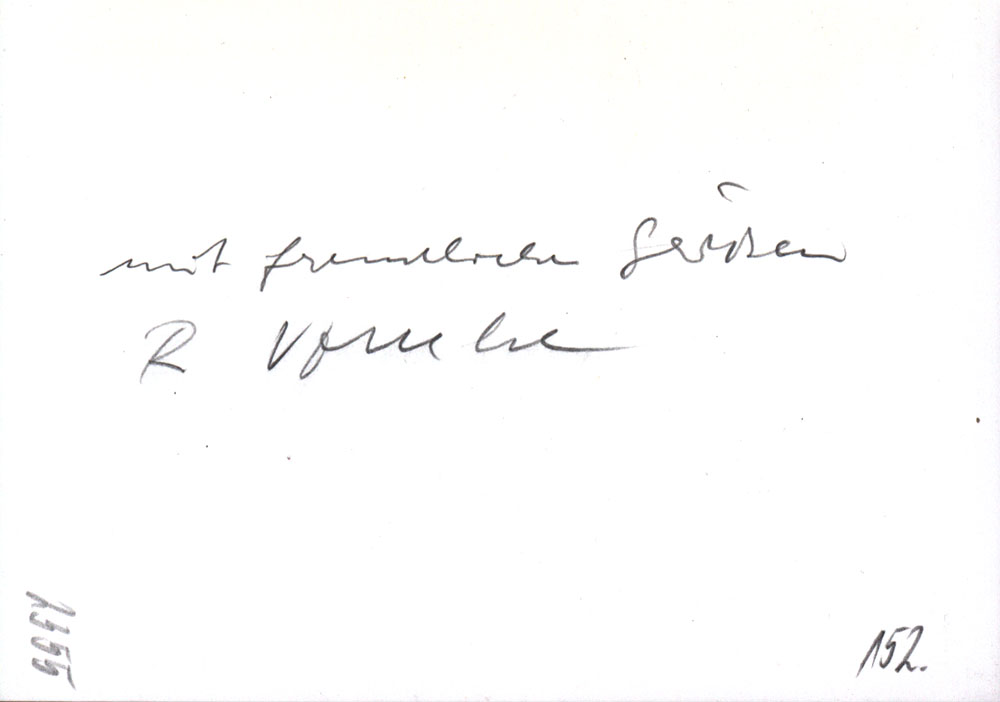 mit freundlichen Grüßen
R
1355
152.